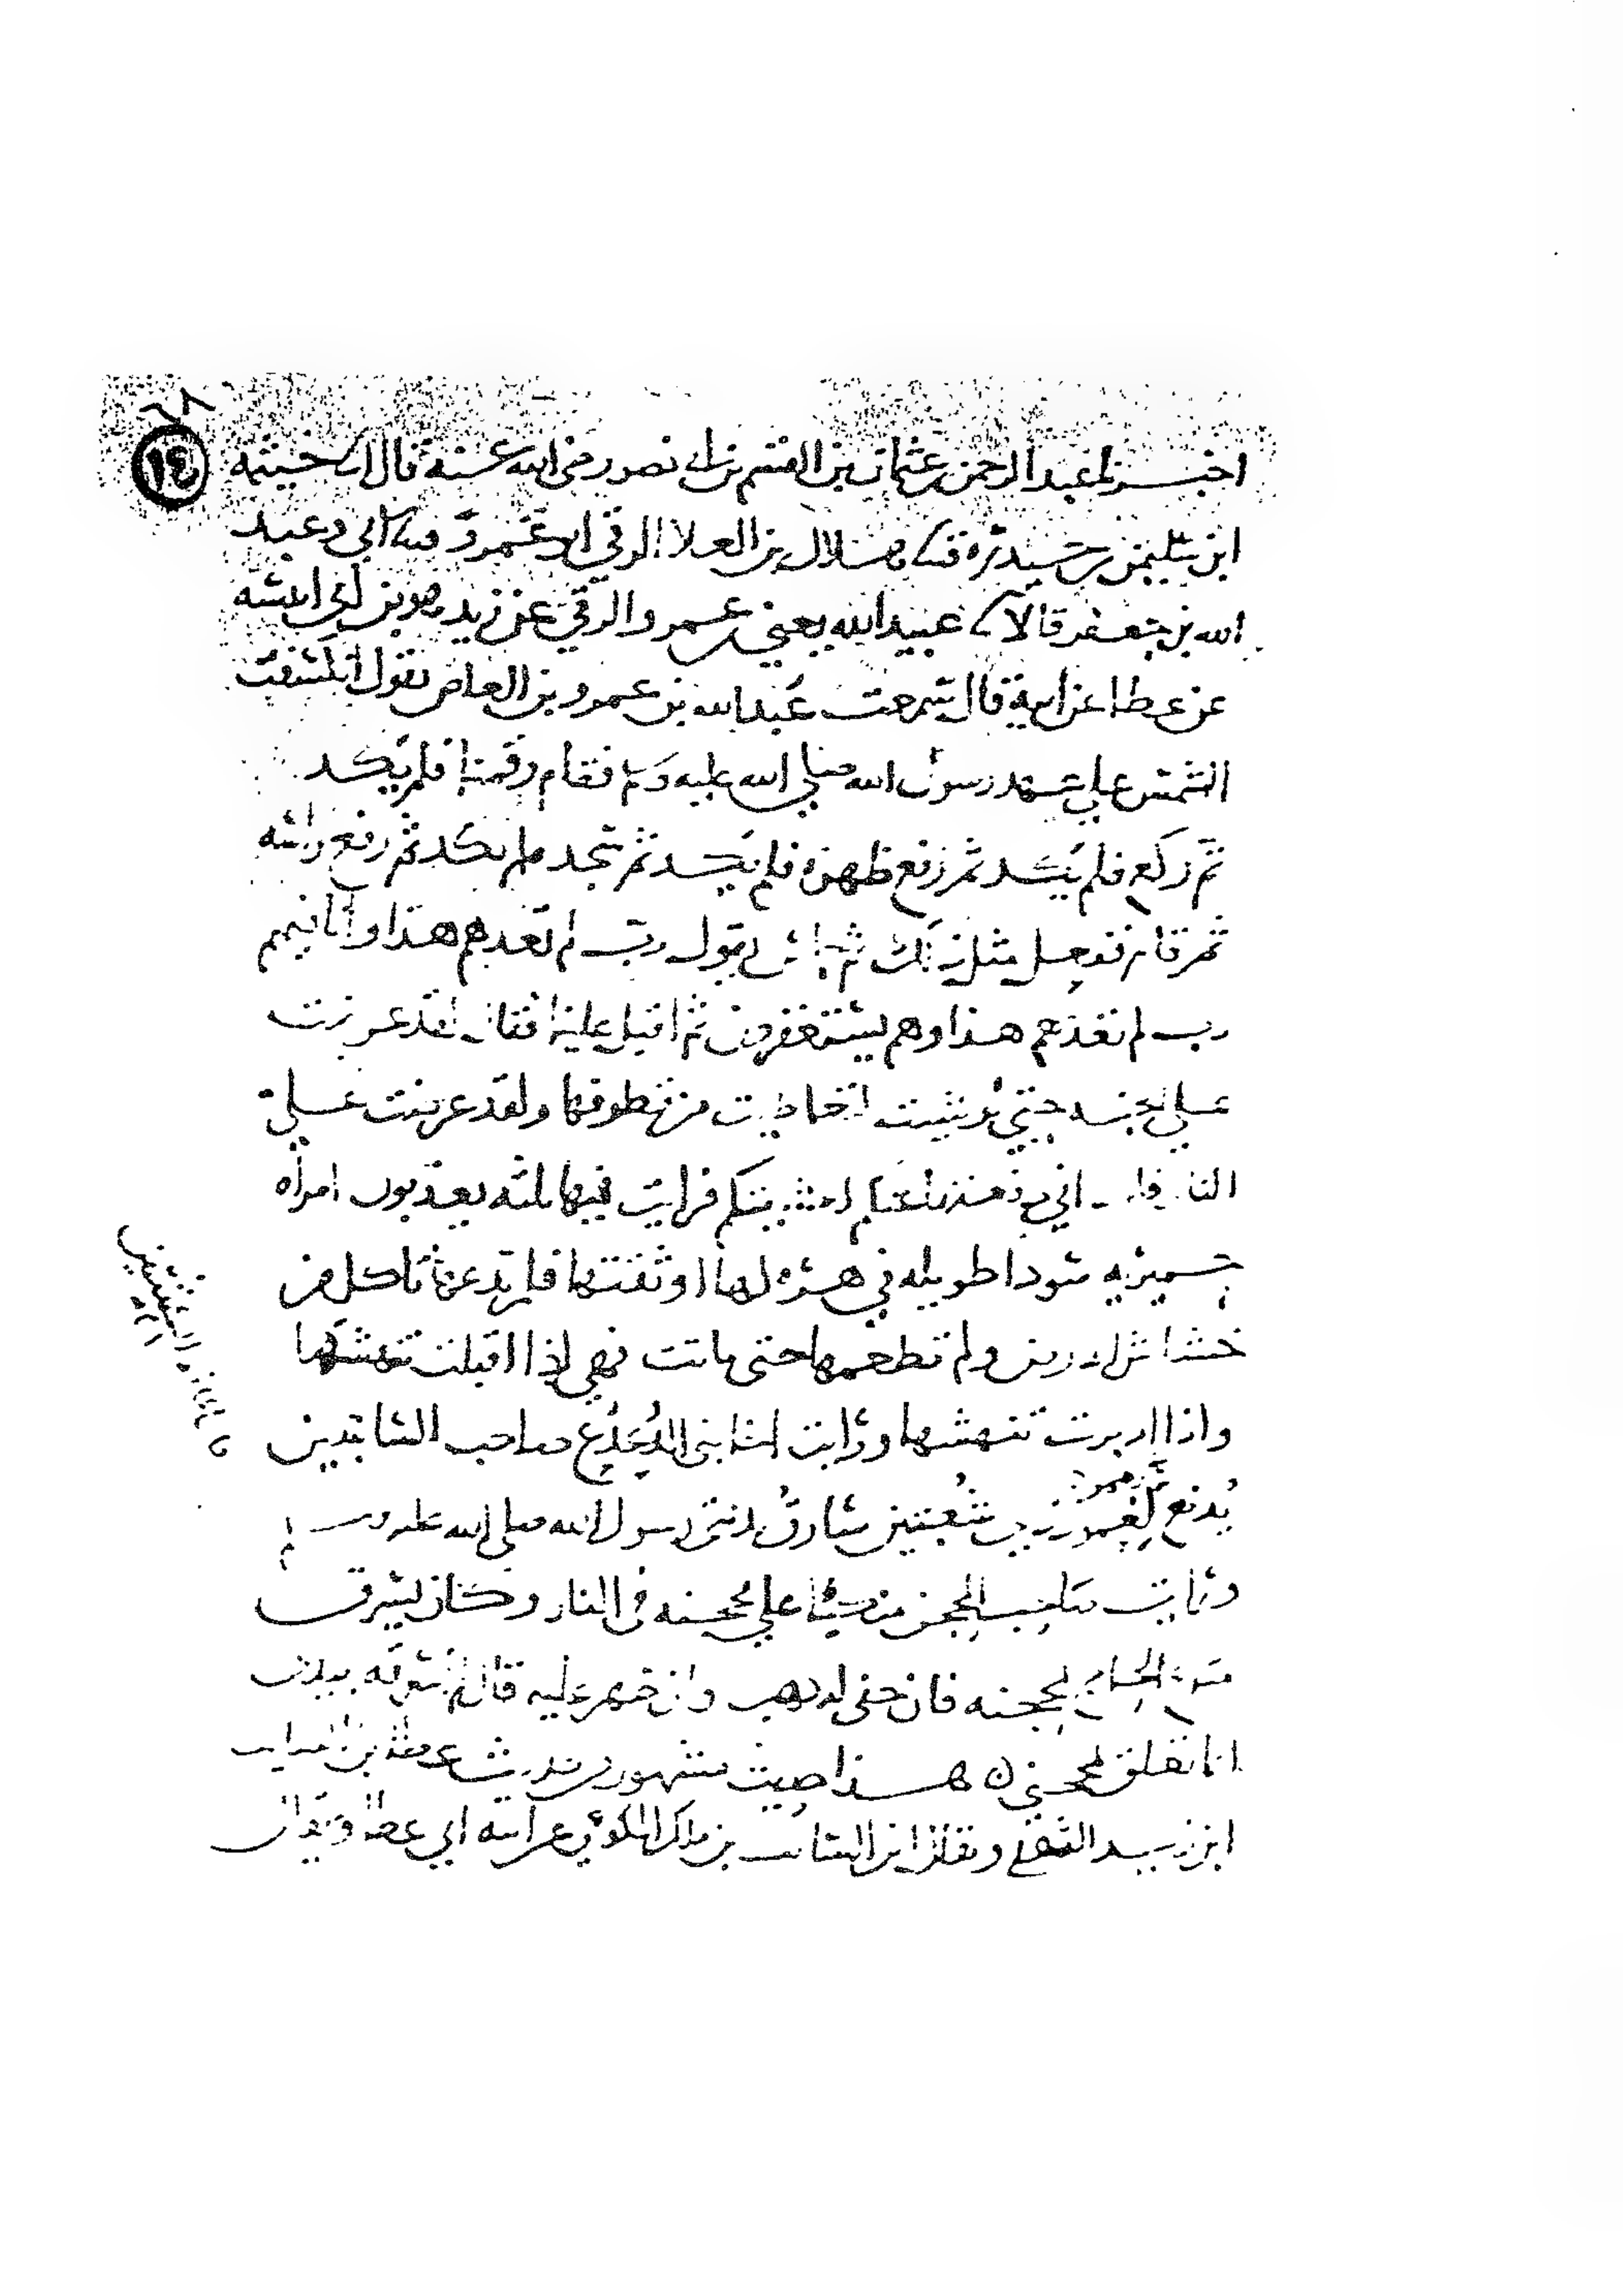 ١٤
اخبرنا عبد الرحمن بن عثمان بن القسم بن ابي نصر رضي الله عنه قال ابنا خيثمه
ابن سليمن بن حيدره ثنا هلال بن العلا الرقي ابو عمرو ثنا ابي وعبد
الله بن جعفر قالا ثنا عبيد الله يعني بن عمرو الرقي عن زيد هو بن ابي انيسه
عن عطا عن ابيه قال سمعت عبد الله بن عمرو بن العاص يقول انكسفت
الشمس علي عهد رسول الله صلي الله عليه وسلم فقام وقمنا فلم يكد
ثم ركع فلم يكد ثم رفع ظهره فلم يكد ثم سجد فلم يكد ثم رفع راسه
ثم قام ففعل مثل ذلك ثم يقول رب لم تعدهم هذا وانا فيهم
رب لم تعدهم هذا وهم يستغفرون ثم اقبل علينا فقال لقد عرضت
علي الجنه حتي لو شيت لتعاطيت من قطوفها ولقد عرضت علي
النار فرايت فيها ثلثه يعذبون امراه
حميريه سودا طويله في هره لها اوثقتها فلم تدعها تاكل من
خشاش الارض ولم تطعمها حتى ماتت فهي اذا اقبلت تنهشها
واذا ادبرت تنهشها ورايت اخا بني الدعدع صاحب السايبتين
يدفع بعمود ذي شعبتين سارق بدنتى رسول الله صلى الله عليه وسلم
ورايت صاحب المحجن متكيا علي محجنه في النار وكان يسرق
متاع الحاج بمحجنه فان خفى له ذهب وان ظهر عليه قال لم اسرقه
انما تعلق بمحجني ن هذا حديث مشهور من حديث عطا بن السايب
ابن زيد الثقفي ويقال ابن السايب بن مالك الكوفي عن ابيه ابي عطا ويقال